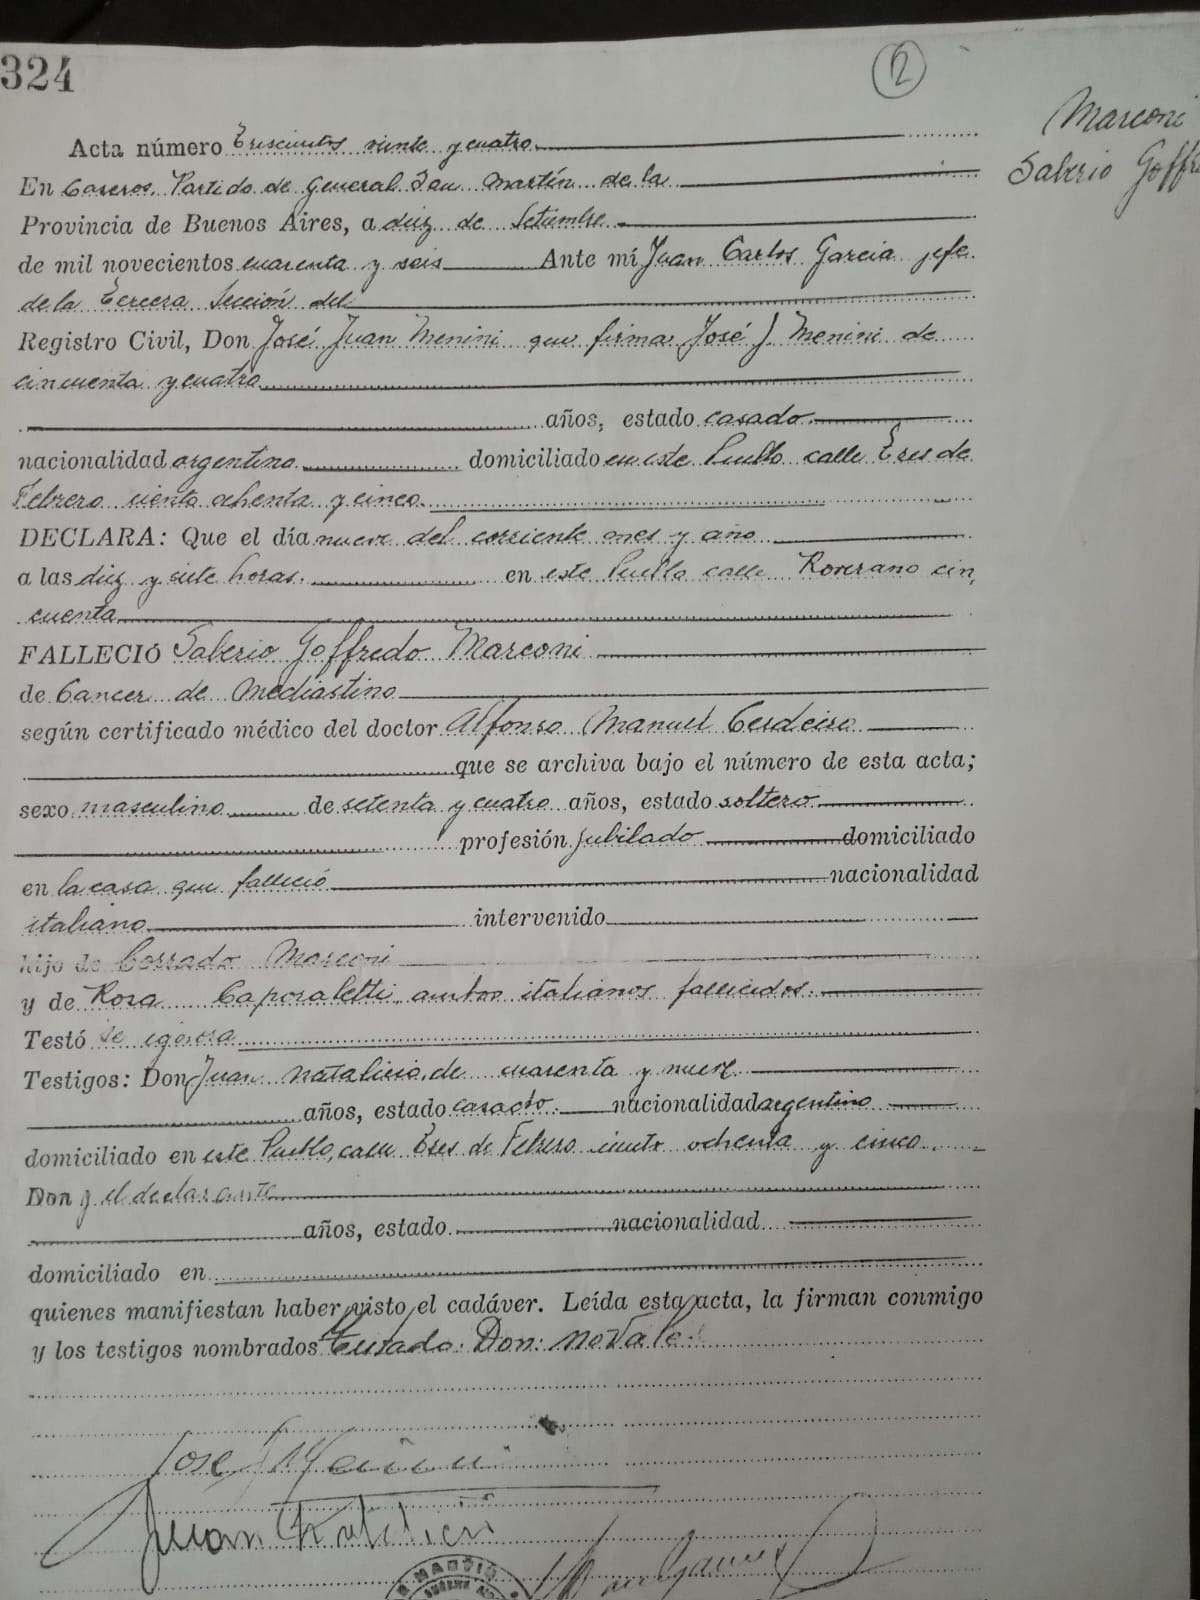 324
2
Marconi
Saberio Goffre
Acta número Trescientos veinte y cuatro
En Caseros, Partido de General San Martín de la
Provincia de Buenos Aires, a diez de Setiembre
de mil novecientos cuarenta y seis Ante mí Juan Carlos Garcia jefe
de la Tercera Sección del
Registro Civil, Don José Juan Menini que firma José J Menini de
cincuenta y cuatro
años, estado casado
nacionalidad argentino domiciliado en este Pueblo calle Tres de
Febrero ciento ochenta y cinco
DECLARA: Que el día nueve del corriente mes y año
a las diez y siete horas. en este Pueblo calle Roverano cin
cuenta
FALLECIÓ Saberio Goffredo Marconi
de Cancer de Mediastino
según certificado médico del doctor Alfonso Manuel Cerdeiro
que se archiva bajo el número de esta acta;
sexo masculino de setenta y cuatro años, estado soltero
profesión jubilado domiciliado
en la casa que falleció nacionalidad
italiano intervenido
hijo de Corrado Marconi
y de Rosa Caporaletti ambos italianos fallecidos.
Testó se ignora
Testigos: Don Juan Natalicio, de cuarenta y nueve
años, estado casado nacionalidad argentino
domiciliado en este Pueblo, calle Tres de Febrero ciento ochenta y cinco
Don y el declarante
años, estado nacionalidad
domiciliado en
quienes manifiestan haber visto el cadáver. Leída esta acta, la firman conmigo
y los testigos nombrados Testado: Don: no vale
Jose J Menini
Juan
MARTIN